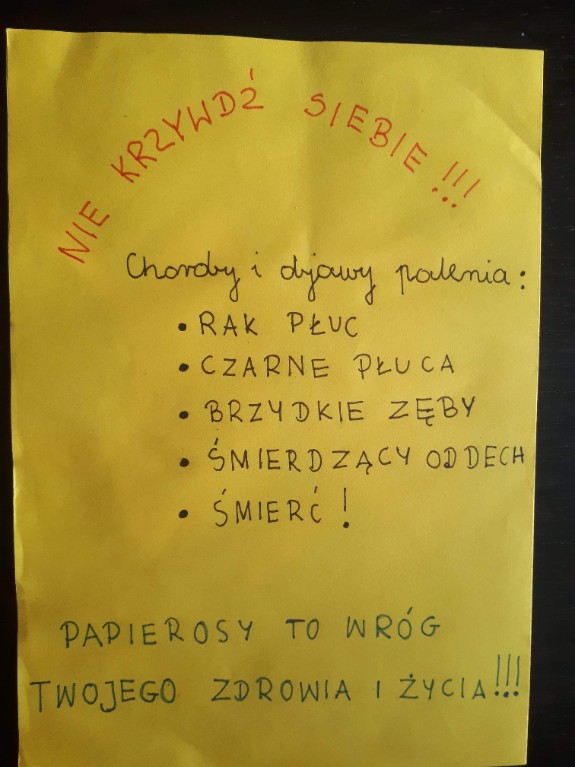 NIE KRZYWDŹ SIEBIE!!!
Choroby i objawy palenia:
• RAK PŁUC
• CZARNE PŁUCA
• BRZYDKIE ZĘBY
• ŚMIERDZĄCY ODDECH
• ŚMIERĆ!
PAPIEROSY TO WRÓG
TWOJEGO ZDROWIA I ŻYCIA!!!